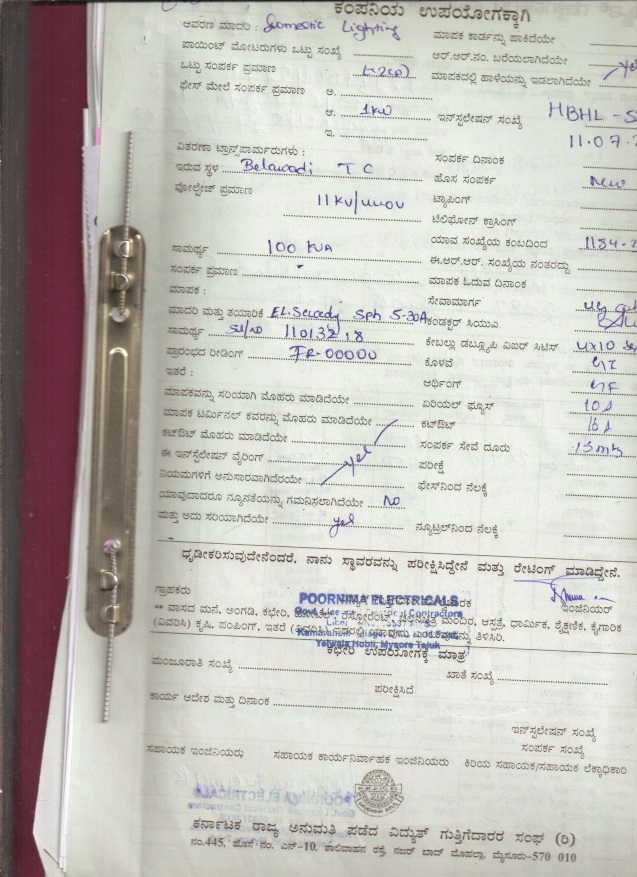 ಕಂಪನಿಯ ಉಪಯೋಗಕ್ಕಾಗಿ
ಆವರಣ ಮಾದರಿ : Domestic Lighting
ಮಾಪಕ ಕಾರ್ಡನ್ನು ಹಾಕಿದೆಯೇ
ಪಾಯಿಂಟ್ ಮೋಟರುಗಳು ಒಟ್ಟು ಸಂಖ್ಯೆ
ಆರ್.ಆರ್.ನಂ. ಬರೆಯಲಾಗಿದೆಯೇ
ಒಟ್ಟು ಸಂಪರ್ಕ ಪ್ರಮಾಣ
ಮಾಪಕದಲ್ಲಿ ಹಾಳೆಯನ್ನು ಇಡಲಾಗಿದೆಯೇ
ಫೇಸ್ ಮೇಲೆ ಸಂಪರ್ಕ ಪ್ರಮಾಣ ಅ.
ಆ. 1kw ಇನ್‌ಸ್ಟಲೇಷನ್ ಸಂಖ್ಯೆ HBHL - S
ಇ. 11.07.
ವಿತರಣಾ ಟ್ರಾನ್ಸ್‌ಫಾರ್ಮರುಗಳು :
ಸಂಪರ್ಕ ದಿನಾಂಕ
ಇರುವ ಸ್ಥಳ Belawadi T C
ಹೊಸ ಸಂಪರ್ಕ New
ವೋಲ್ಟೇಜ್ ಪ್ರಮಾಣ 11KV/440V
ಟ್ಯಾಪಿಂಗ್
ಟೆಲಿಫೋನ್ ಕ್ರಾಸಿಂಗ್
ಸಾಮರ್ಥ್ಯ 100 KVA
ಯಾವ ಸಂಖ್ಯೆಯ ಕಂಬದಿಂದ 1184.
ಸಂಪರ್ಕ ಪ್ರಮಾಣ
ಈ.ಆರ್.ಆರ್. ಸಂಖ್ಯೆಯ ನಂತರದ್ದು
ಮಾಪಕ :
ಮಾಪಕ ಓದುವ ದಿನಾಂಕ
ಸೇವಾಮಾರ್ಗ
ಮಾದರಿ ಮತ್ತು ತಯಾರಿಕೆ EL.Sewedy Sph 5-30A
ಕಂಡಕ್ಟರ್ ಸಿಯುವಿ
ಸಾಮರ್ಥ್ಯ Sl/no 11013218
ಕೇಬಲ್ಲು ಡಬ್ಲ್ಯೂಪಿ ವಿಐರ್ ಸಿಟಿಸ್ 4x10
ಪ್ರಾರಂಭದ ರೀಡಿಂಗ್ IR-00000
ಕೊಳವೆ
ಇತರೆ :
ಆರ್ಥಿಂಗ್
ಮಾಪಕವನ್ನು ಸರಿಯಾಗಿ ಮೊಹರು ಮಾಡಿದೆಯೇ
ಏರಿಯಲ್ ಫ್ಯೂಸ್
ಮಾಪಕ ಟರ್ಮಿನಲ್ ಕವರನ್ನು ಮೊಹರು ಮಾಡಿದೆಯೇ
ಕಟ್‌ಔಟ್
ಕಟ್‌ಔಟ್ ಮೊಹರು ಮಾಡಿದೆಯೇ
ಸಂಪರ್ಕ ಸೇವೆ ದೂರು 15mts
ಈ ಇನ್‌ಸ್ಟಲೇಷನ್ ವೈರಿಂಗ್ yes
ಪರೀಕ್ಷೆ
ನಿಯಮಗಳಿಗೆ ಅನುಸಾರವಾಗಿದೆರಯೇ
ಫೇಸ್‌ನಿಂದ ನೆಲಕ್ಕೆ
ಯಾವುದಾದರೂ ನ್ಯೂನತೆಯನ್ನು ಗಮನಿಸಲಾಗಿದೆಯೇ No
ಮತ್ತು ಅದು ಸರಿಯಾಗಿದೆಯೇ yes
ನ್ಯೂಟ್ರಲ್‌ನಿಂದ ನೆಲಕ್ಕೆ
ಧೃಡೀಕರಿಸುವುದೇನೆಂದರೆ, ನಾನು ಸ್ಥಾವರವನ್ನು ಪರೀಕ್ಷಿಸಿದ್ದೇನೆ ಮತ್ತು ರೇಟಿಂಗ್ ಮಾಡಿದ್ದೇನೆ.
ಗ್ರಾಹಕರು
POORNIMA ELECTRICALS
ಇಂಜಿನಿಯರ್
Govt. Licensed Electrical Contractors
** ವಾಸದ ಮನೆ, ಅಂಗಡಿ, ಕಛೇರಿ, ಹೋಟೆಲ್, ರೆಸ್ಟೋರೆಂಟ್, ಮಂದಿರ, ಆಸ್ಪತ್ರೆ, ಧಾರ್ಮಿಕ, ಶೈಕ್ಷಣಿಕ, ಕೈಗಾರಿಕೆ
(ವಿವರಿಸಿ) ಕೃಷಿ, ಪಂಪಿಂಗ್, ಇತರೆ (ವಿವರಿಸಿ) ತಿಳಿಸಿರಿ.
Yelwala Hobli, Mysore Taluk
ಕಛೇರಿ ಉಪಯೋಗಕ್ಕೆ ಮಾತ್ರ
ಮಂಜೂರಾತಿ ಸಂಖ್ಯೆ
ಖಾತೆ ಸಂಖ್ಯೆ
ಪರೀಕ್ಷಿಸಿದೆ
ಕಾರ್ಯ ಆದೇಶ ಮತ್ತು ದಿನಾಂಕ
ಇನ್‌ಸ್ಟಲೇಷನ್ ಸಂಖ್ಯೆ
ಸಂಪರ್ಕ ಸಂಖ್ಯೆ
ಸಹಾಯಕ ಇಂಜಿನಿಯರು ಸಹಾಯಕ ಕಾರ್ಯನಿರ್ವಾಹಕ ಇಂಜಿನಿಯರ್ ಕಿರಿಯ ಸಹಾಯಕ/ಸಹಾಯಕ ಲೆಕ್ಕಾಧಿಕಾರಿ
ಕರ್ನಾಟಕ ರಾಜ್ಯ ಅನುಮತಿ ಪಡೆದ ವಿದ್ಯುತ್ ಗುತ್ತಿಗೆದಾರರ ಸಂಘ (ರಿ)
ನಂ.445, ಹೊಸ ನಂ. ಎನ್-10, ಶಾಲಿವಾಹನ ರಸ್ತೆ, ನಜರ್ ಬಾದ್ ಮೊಹಲ್ಲಾ, ಮೈಸೂರು-570 010